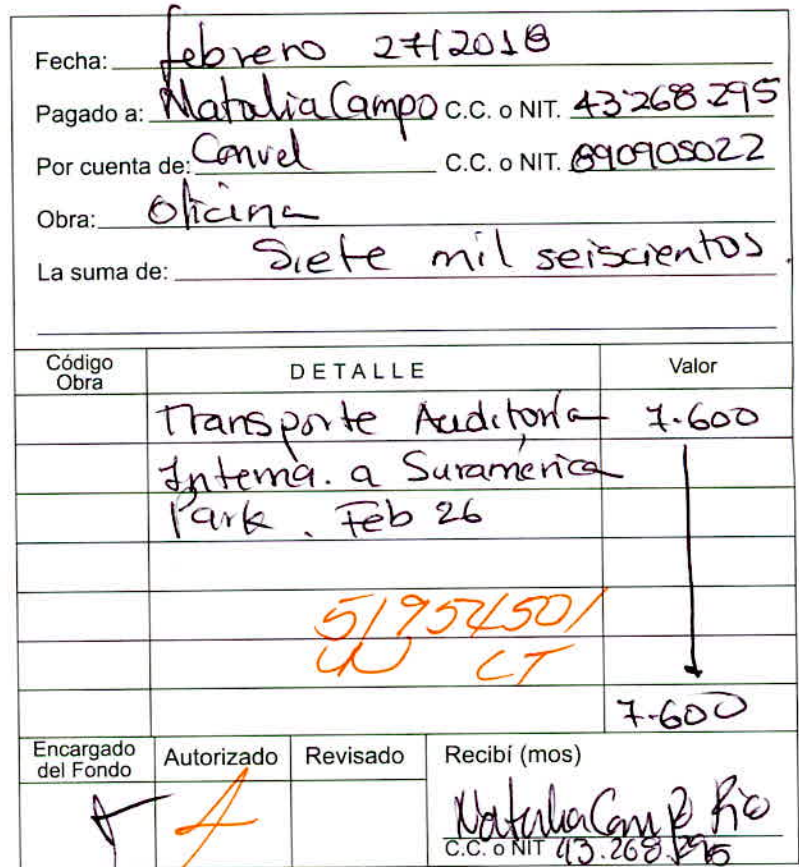 Fecha: febrero 27/2018
Pagado a: Natalia Campo C.C. o NIT. 43'268.295
Por cuenta de: Convel C.C. o NIT. 890905022
Obra: oficina
La suma de: Siete mil seiscientos.
Código Obra DETALLE Valor
Transporte Auditoría 7.600
Interna. a Suramérica
Park. Feb 26
51954501
CT
7.600
Encargado del Fondo Autorizado Revisado Recibí (mos)
Natalia Camp Rio
C.C. o NIT 43.268.295